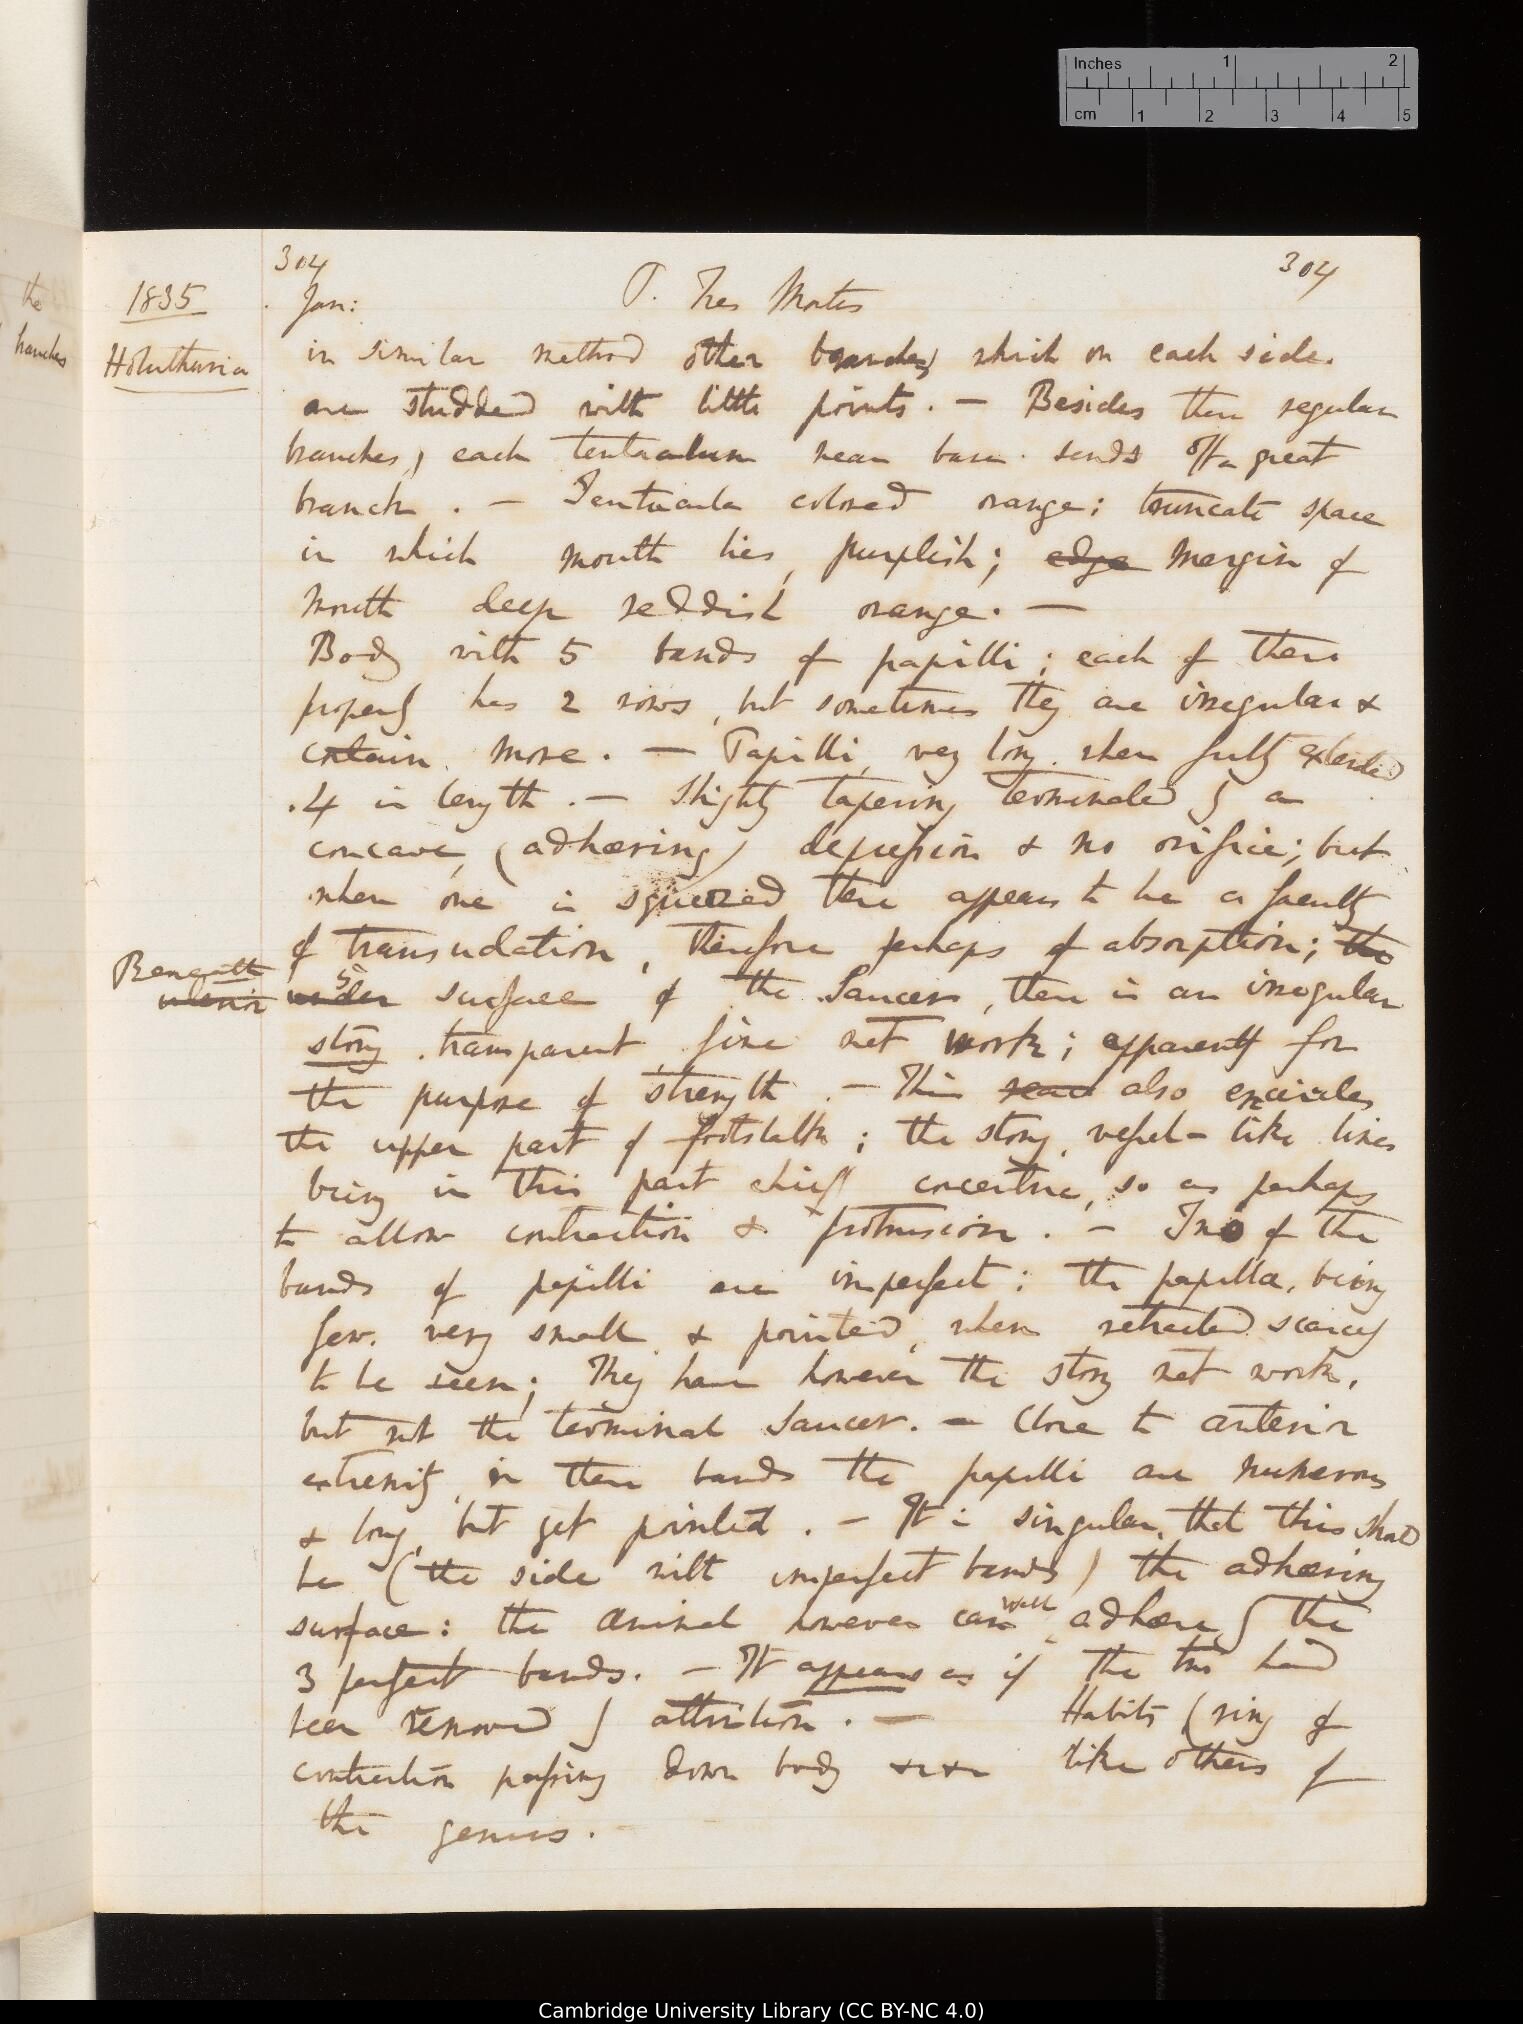 Inches 1 2
cm 1 2 3 4 5
the
branches
304 304
1835 Jan: P. Tres Montes
Holuthuria
in similar method other branches, which on each side
are studded with little points. — Besides these regular
branches, each tentaculum near base sends off a great
branch. — Tentacula colored orange; truncate space
in which mouth lies, purplish; edge margin of
mouth deep reddish orange. —
Body with 5 bands of papilli; each of these
properly has 2 rows, but sometimes they are irregular &
contain more. — Papilli, very long when fully extended
.4 in length. — Slightly tapering terminated by a
concave, (adhæring) depression & no orifice; but
when one is squeezed there appears to be a faculty
of transudation, therefore perhaps of absorption; the
Beneath
under surface of the Saucer, there is an irregular
stony transparent fine net work; apparently for
the purpose of strength. — This also encircles
the upper part of footstalk; the stony, vessel-like lines
being in this part chiefly concentric, so as perhaps
to allow contraction & protrusion. — Two of the
bands of papilli are imperfect: the papillæ, being
few, very small & pointed, when retracted scarcely
to be seen; They have however the stony net work,
but not the terminal Saucer. — Close to anterior
extremity, in these bands the papilli are numerous
& long, but yet pointed. — It is singular, that this shd
be (the side with imperfect bands) the adhæring
surface: the animal however can well adhære by the
3 perfect bands. — It appears as if the two had
been removed by attrition. — Habits (ring of
contraction passing down body &c &c like others of
the genus.
Cambridge University Library (CC BY-NC 4.0)